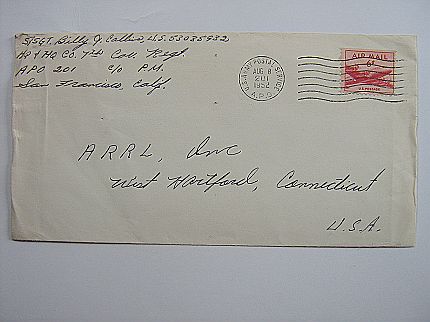 S/SGT. Billy J. Collins U.S. 53035932
HQ & HQ CO. 7th Cav. Regt.
APO 201 c/o P.M.
San Francisco, Calif.
U.S. ARMY POSTAL SERVICE
AUG 8
201
1952
A.P.O.
AIR MAIL
6¢
U.S. POSTAGE
ARRL, Inc
West Hartford, Connecticut
U.S.A.